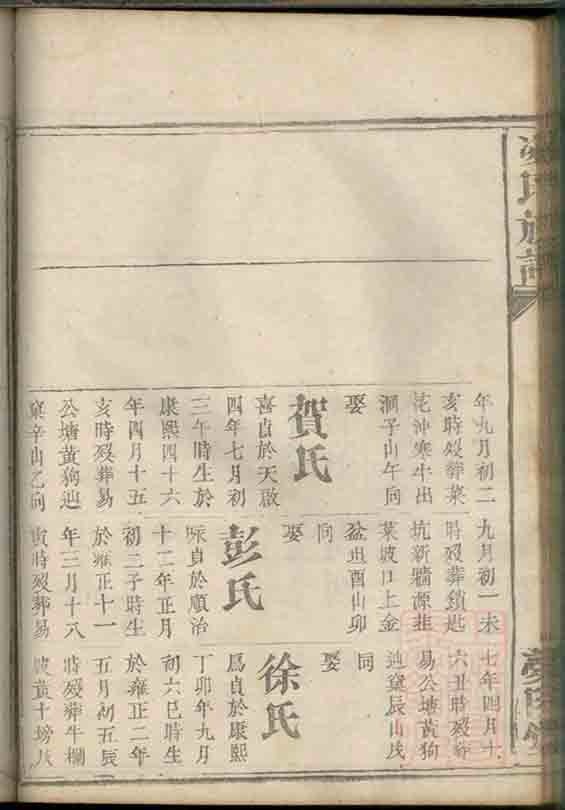 氏族譜
年九月初二
亥時歿葬菜
花沖寒牛出
洞子山午向
娶
賀氏
喜貞於天啟
四年七月初
三午時生於
康熙四十六
年四月十五
亥時歿葬易
公塘黃狗迆
窠辛山乙向
九月初一未
時歿葬鎖匙
坑新牆源韭
菜坡口上金
盆丑酉山卯
向
娶
彭氏
貞於順治
十二年正月
初二子時生
於雍正十一
年三月十八
寅時歿葬易
七年四月十
六丑時歿葬
易公塘黃狗
迆窠辰山戌
向
娶
徐氏
爲貞於康熙
丁卯年九月
初六巳時生
於雍正二年
五月初五辰
時歿葬牛欄
坡黃十塝